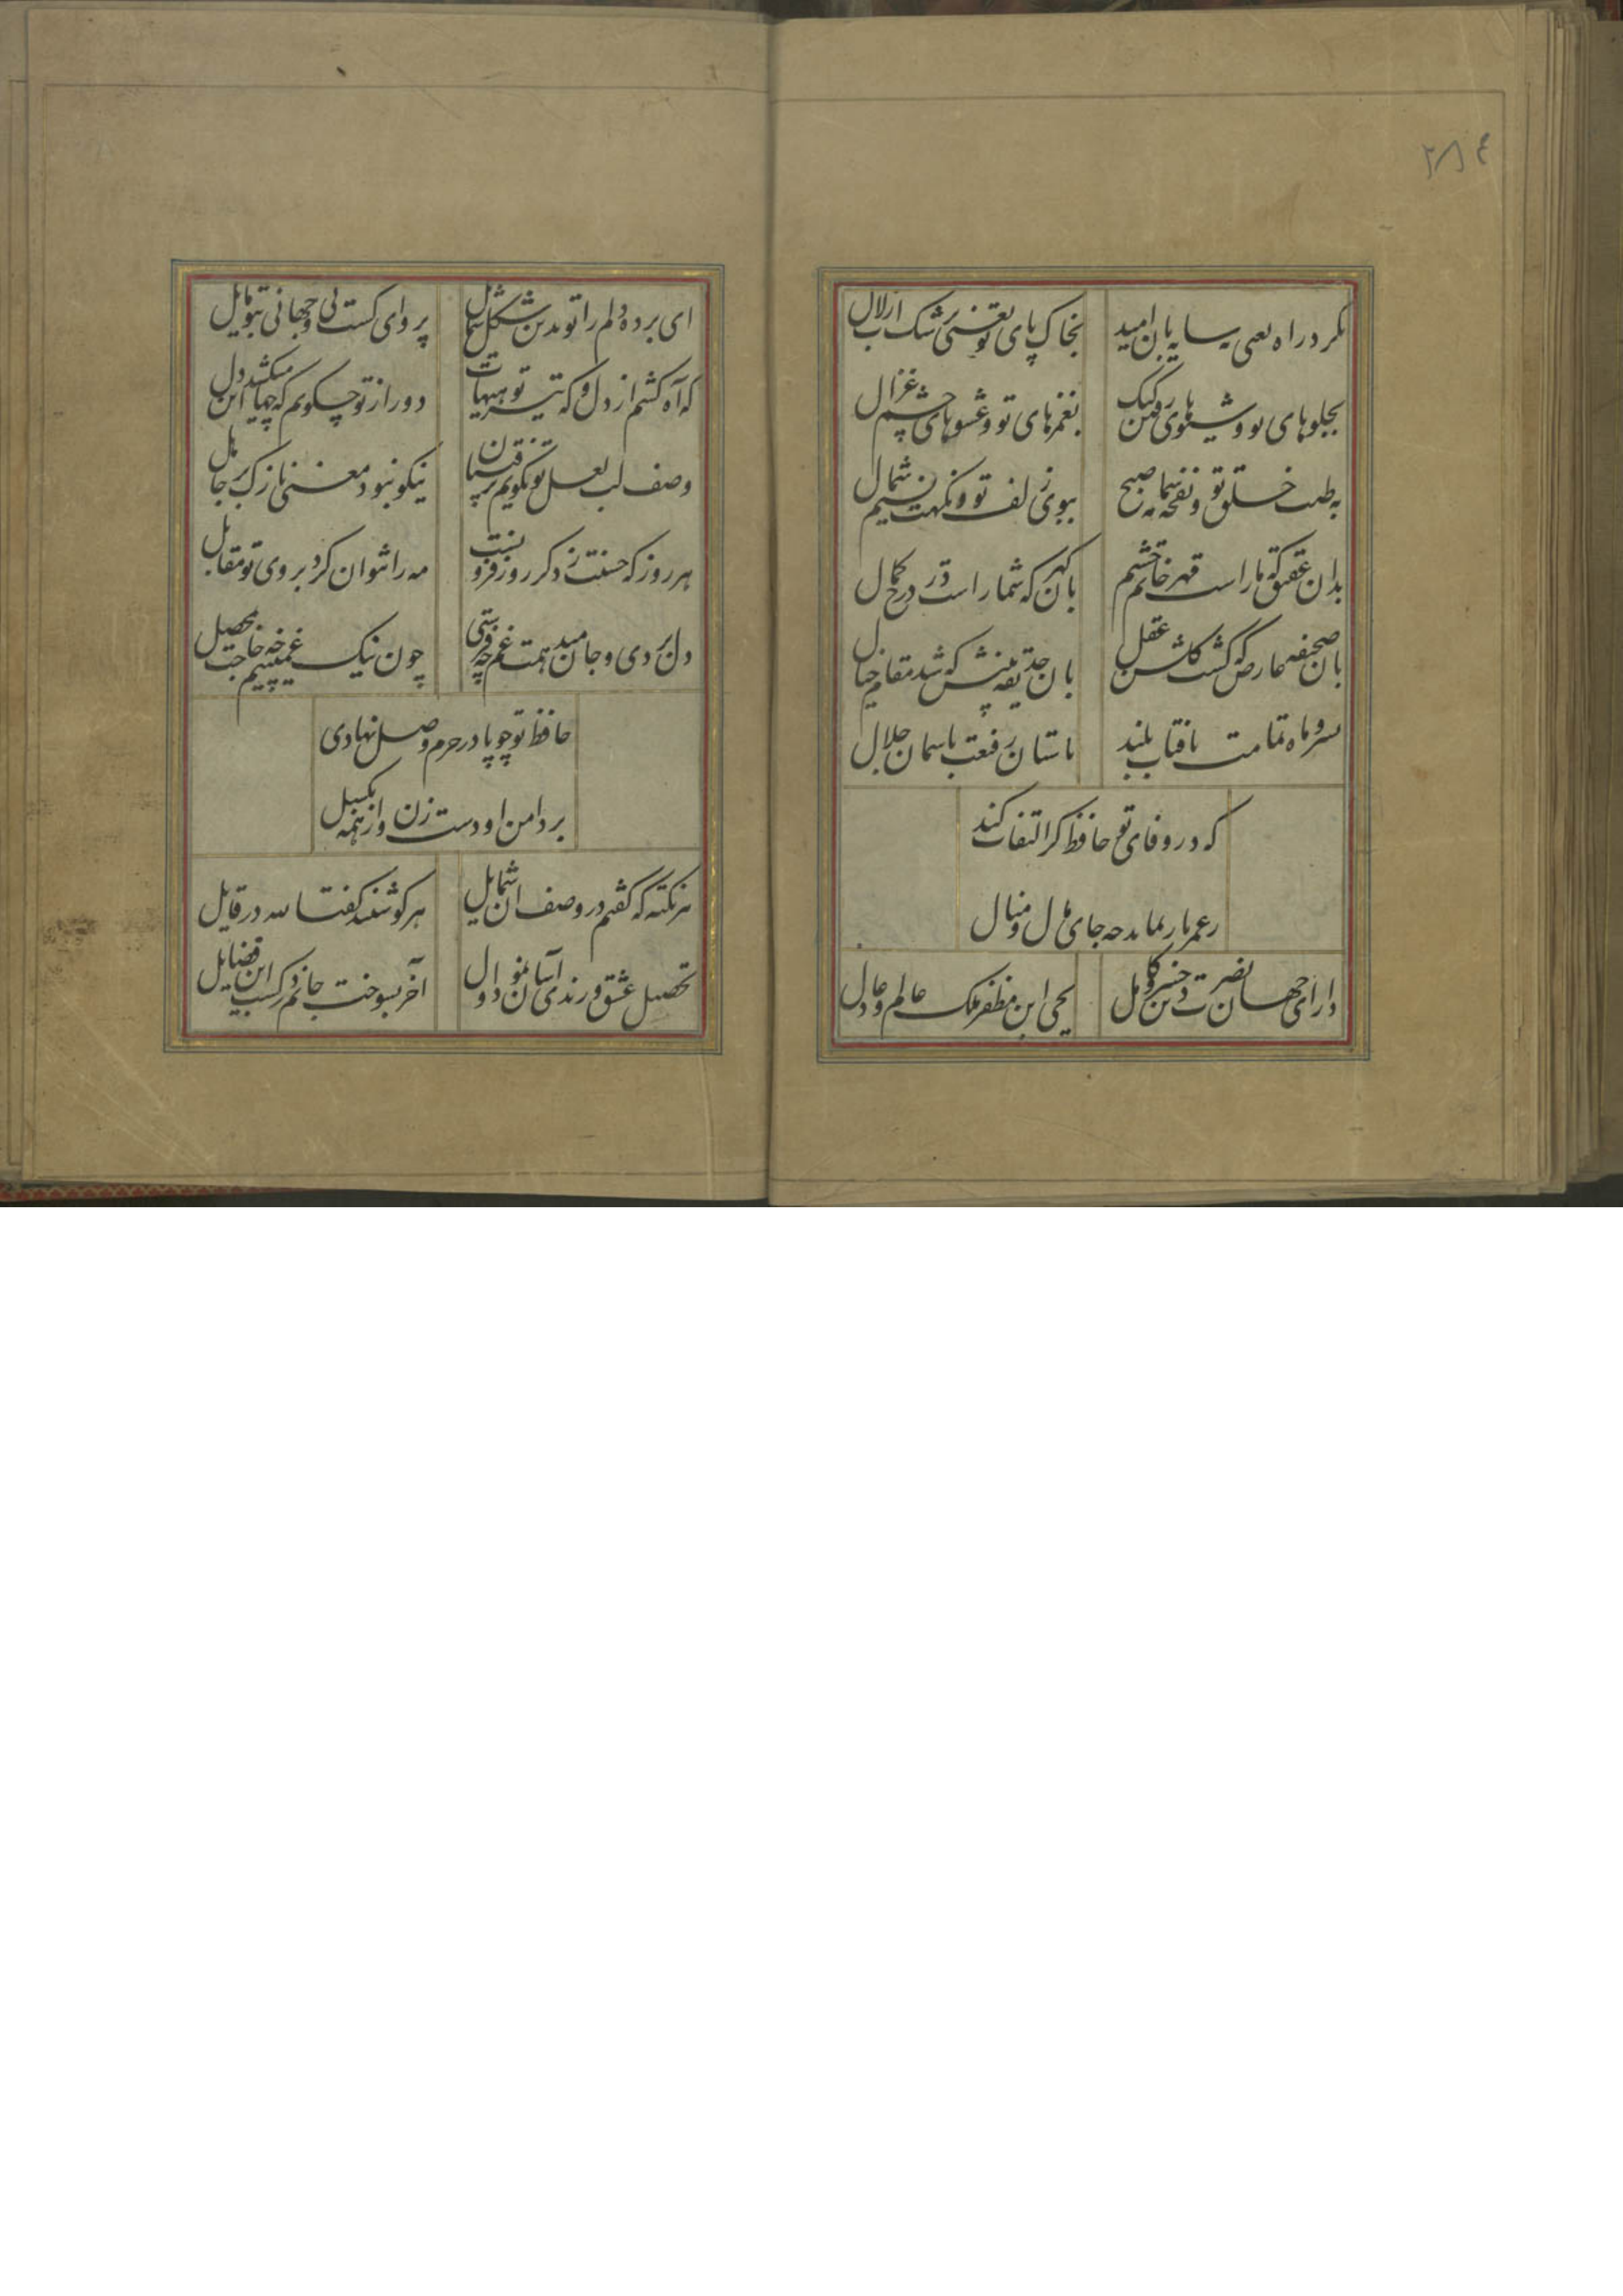 ۲۸۴
بکرد راه یعنی سایه بان امید
بخاک پای تو یعنی برشک آب زلال
بجلوهای تو و شیوهای رفتن کبک
بغمزهای تو و عشوهای چشم غزال
بطیب خلق تو و نفحه شمامه صبح
ببوی زلف تو و نکهت نسیم شمال
بدان عقیق که ما راست مهر خاتم چشم
بان کهر که شما راست در درج کمال
بان صحیفه عارض که کشت کلشن عقل
بان حدیقه بینش که شد مقام خیال
بسرو ماه تمامت بافتاب بلند
باستان رفیعت باسمان جلال
که در وفای تو حافظ کر التفات کند
بعمر باز نماند چه جای مال و منال
دارای جهان نصرت دین خسرو کامل
یحیی ابن مظفر ملک عالم و عادل
ای برده دلم را تو بدین شکل شمایل
پروای کست نی و جهانی بتو مایل
که آه کشم از دل و که تیر تو هیهات
دور از تو چکویم که چها میکشد این دل
وصف لب لعل تو نکویم برقیبان
نیکو نبود معنی نازک بر جاهل
هر روز که حسنت ز دکر روز فزونست
مه را نتوان کرد بروی تو مقابل
دل بردی و جان میدهمت غم چه فرستی
چون نیک غمینیم چه حاجت بمحصل
حافظ تو چو پا در حرم وصل نهادی
بر دامن او دست زن و از همه بکسیل
هر نکته که کفتم در وصف ان شمایل
هر کو شنید کفتا لله در قایل
تحصیل عشق و رندی آسان نمود اول
آخر بسوخت جانم در کسب این فضایل